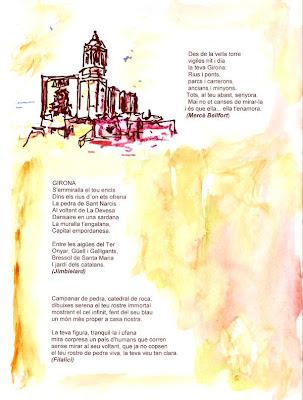 Des de la vella torre
vigiles nit i dia
la teva Girona:
Rius i ponts,
parcs i carrerons,
ancians i minyons.
Tots, al teu abast, senyora.
Mai no et canses de mirar-la
i és que ella... ella t'enamora.
(Mercè Bellfort)
GIRONA
S'emmiralla el teu encís
Dins els rius d´on ets ofrena
La pedra de Sant Narcís
Al voltant de La Devesa
Dansaire en una sardana
La muralla t'engalana,
Capital empordanesa.
Entre les aigües del Ter
Onyar, Güell i Galligants,
Bressol de Santa Maria
I jardí dels catalans.
(Jimbielard)
Campanar de pedra, catedral de roca,
dibuixes serena el teu rostre immortal
mostrant el cel infinit, fent del seu blau
un món més proper a casa nostra.
La teva figura, tranquil·la i ufana
mira corpresa un país d'humans que corren
sense mirar al seu voltant, que ja no copsen
el teu rostre de pedra viva, la teva veu tan clara.
(Filalici)